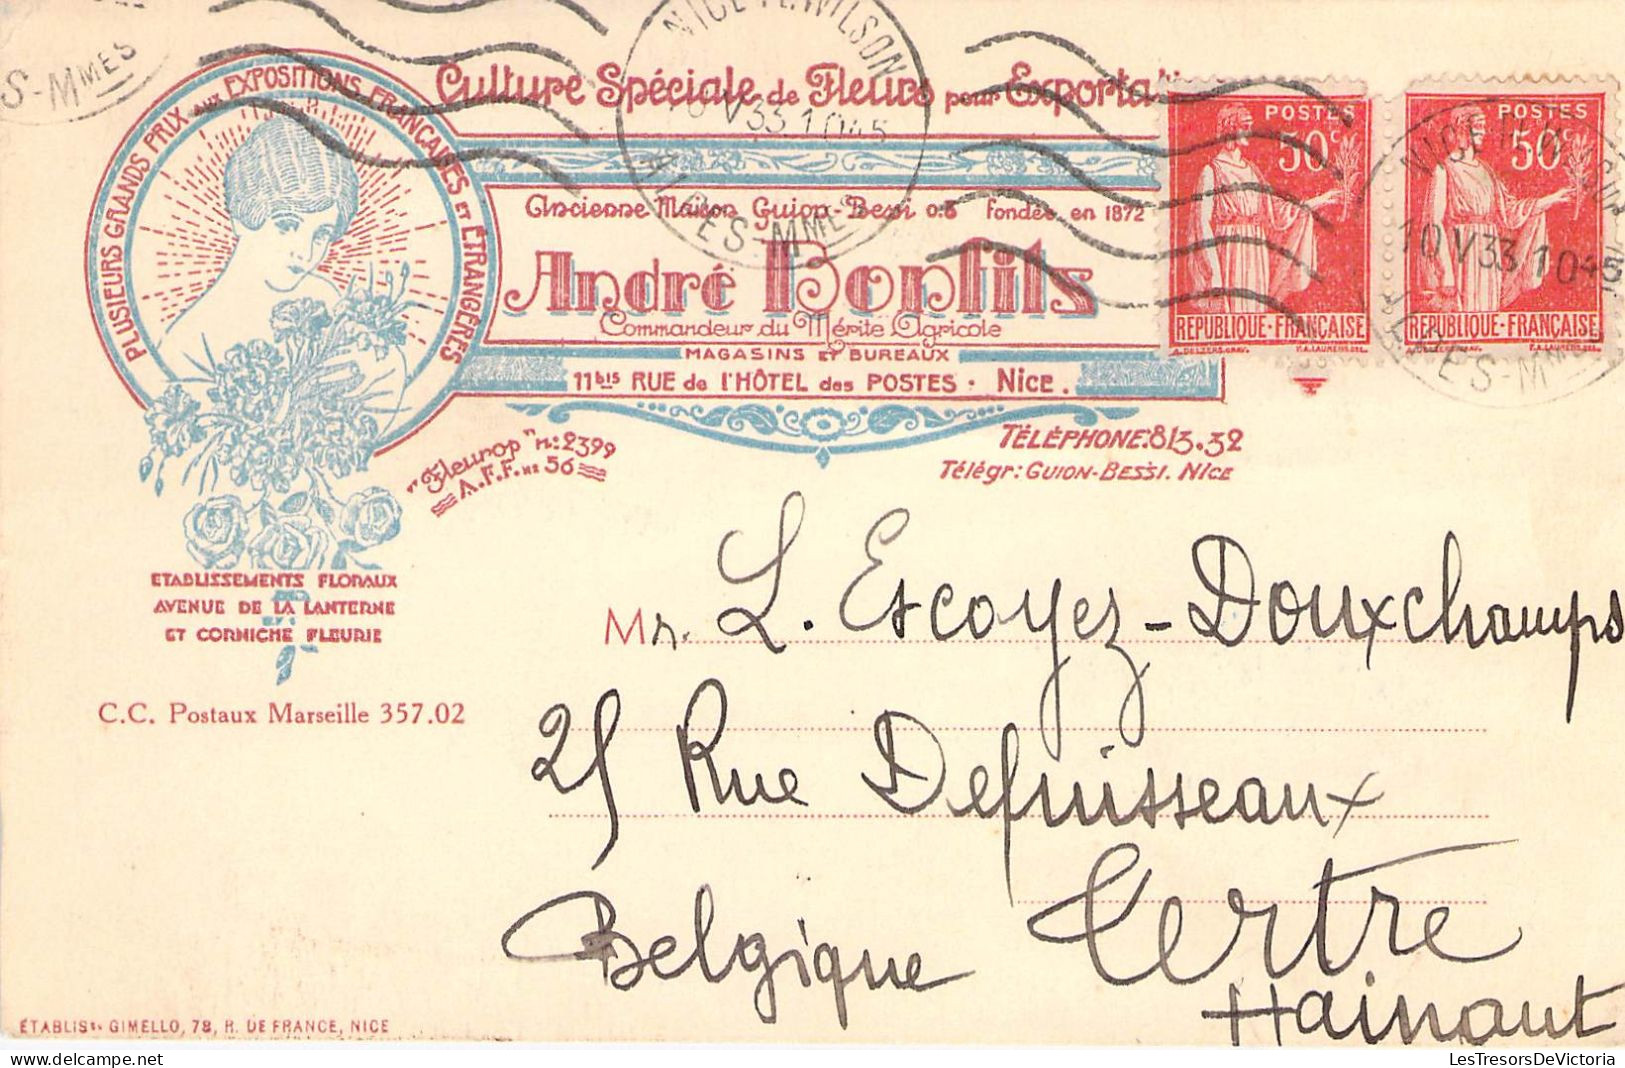 S-MMES
NICE Pl. WILSON
10 V 33 1045
ALPES-MMES
Culture Spéciale de Fleurs pour Exporta
PLUSIEURS GRANDS PRIX aux EXPOSITIONS FRANÇAISES ET ÉTRANGÈRES
Ancienne Maison Guion-Bessi o.& fondée en 1872
André Bonfils
Commandeur du Mérite Agricole
MAGASINS ET BUREAUX
11bis RUE de l'HÔTEL des POSTES · NICE.
POSTES
50c
RÉPUBLIQUE-FRANÇAISE
POSTES
50c
RÉPUBLIQUE-FRANÇAISE
10 V 33 1045
"Fleurop" n: 2399
A.F.F. No 56
TÉLÉPHONE: 813.32
Télégr: GUION-BESSI. NICE
ETABLISSEMENTS FLORAUX
AVENUE DE LA LANTERNE
ET CORNICHE FLEURIE
C.C. Postaux Marseille 357.02
Mr. L. Escoyez-Douxchamps
25 Rue Defuisseaux
Belgique Tertre
Hainaut
ÉTABLISts. GIMELLO, 78, R. DE FRANCE, NICE
LesTresorsDeVictoria